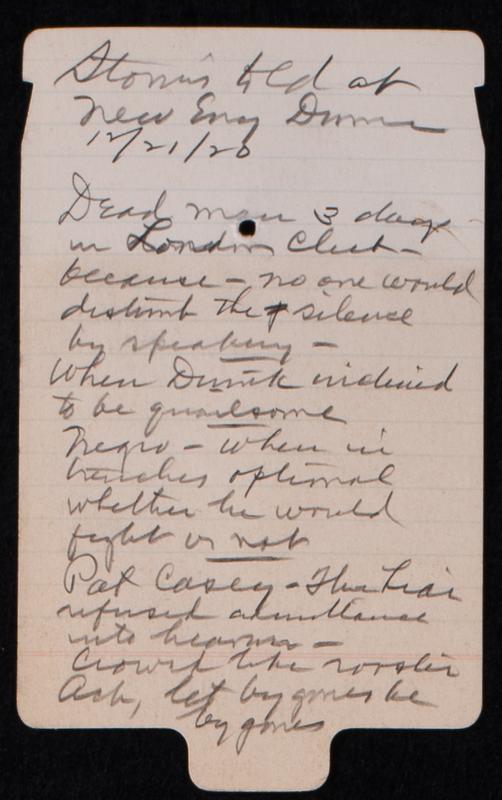 Stories told at
New Eng Dinner
12/21/20
Dead man 3 days
in London Club -
because - no one would
disturb the silence
by speaking -
When Drunk inclined
to be quarlsome
Negro - when in
trenches optional
whether he would
fight or not
Pat Casey - The Liar
refused admittance
into heaven -
Crowed like rooster
Ach, let bygones be
by gones